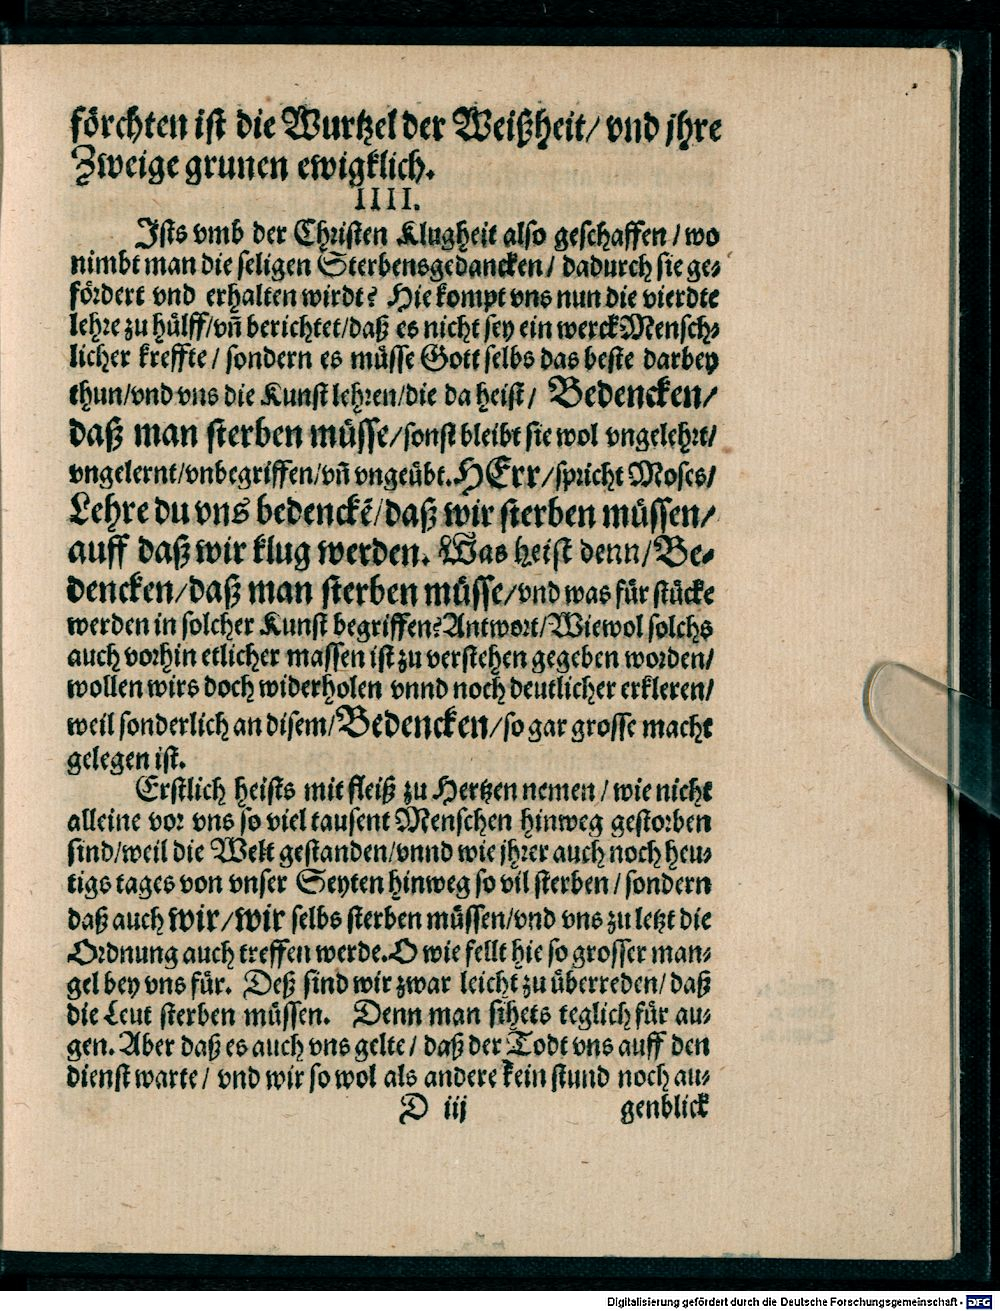 förchten ist die Wurtzel der Weißheit/ vnd jhre
Zweige grunen ewigklich.
IIII.
Ists vmb der Christen Klugheit also geschaffen / wo
nimbt man die seligen Sterbensgedancken / dadurch sie ge-
fördert vnd erhalten wirdt? Hie kompt vns nun die vierdte
lehre zu hülff/vn̄ berichtet/daß es nicht sey ein werck Mensch-
licher kreffte / sondern es müsse Gott selbs das beste darbey
thun/vnd vns die Kunst lehren/die da heist / Bedencken/
daß man sterben müsse/sonst bleibt sie wol vngelehrt/
vngelernt/vnbegriffen/vn̄ vngeübt. HErr/spricht Moses/
Lehre du vns bedenckē/daß wir sterben müssen/
auff daß wir klug werden. Was heist denn/Be-
dencken/daß man sterben müsse/vnd was für stücke
werden in solcher Kunst begriffen? Antwort/Wiewol solchs
auch vorhin etlicher massen ist zu verstehen gegeben worden/
wollen wirs doch widerholen vnnd noch deutlicher erkleren/
weil sonderlich an disem/Bedencken/so gar grosse macht
gelegen ist.
Erstlich heists mit fleiß zu Hertzen nemen / wie nicht
alleine vor vns so viel tausent Menschen hinweg gestorben
sind/weil die Welt gestanden/vnnd wie jhrer auch noch heu-
tigs tages von vnser Seyten hinweg so vil sterben / sondern
daß auch wir/wir selbs sterben müssen/vnd vns zu letzt die
Ordnung auch treffen werde. O wie fellt hie so grosser man-
gel bey vns für. Deß sind wir zwar leicht zu überreden/ daß
die Leut sterben müssen. Denn man sihets teglich für au-
gen. Aber daß es auch vns gelte / daß der Todt vns auff den
dienst warte / vnd wir so wol als andere kein stund noch au-
D iij genblick
Digitalisierung gefördert durch die Deutsche Forschungsgemeinschaft - DFG